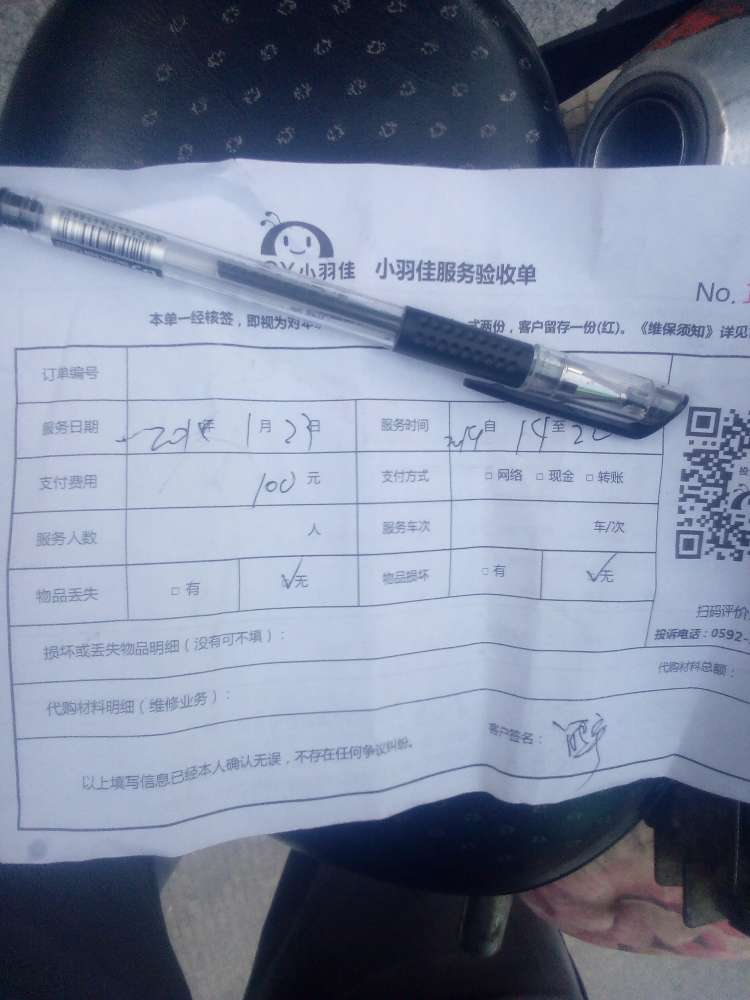 小羽佳 小羽佳服务验收单
No.
本单一经核签，即视为对 式两份，客户留存一份(红)。《维保须知》详见
订单编号
服务日期 年 1月23日 服务时间 自 14至
支付费用 100元 支付方式 □网络 □现金 □转账
服务人数 人 服务车次 车/次
物品丢失 □有 ☑无 物品损坏 □有 ☑无
扫码评价
损坏或丢失物品明细（没有可不填）：
投诉电话：0592-
代购材料明细（维修业务）：
代购材料总额：
客户签名：
以上填写信息已经本人确认无误，不存在任何争议纠纷。